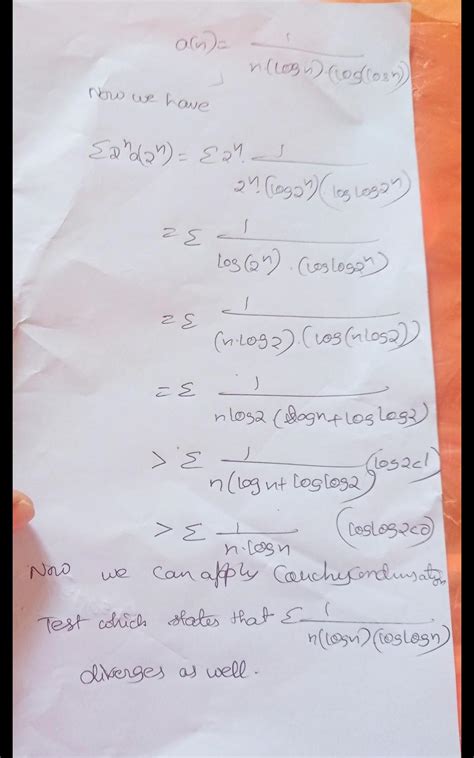 a(n) = 1 / n(log n).(log(log n))
Now we have
Σ2ⁿa(2ⁿ) = Σ2ⁿ. 1 / 2ⁿ.(log2ⁿ)(log log2ⁿ)
= Σ 1 / log(2ⁿ).(log log2ⁿ)
= Σ 1 / (n.log2).(log(nlog2))
= Σ 1 / nlog2 (logn + log log2)
> Σ 1 / n(logn + loglog2) (log2<1)
> Σ 1 / n.logn (loglog2<0)
Now we can apply Cauchy condensation
Test which states that Σ 1 / n(logn)(loglogn)
diverges as well.